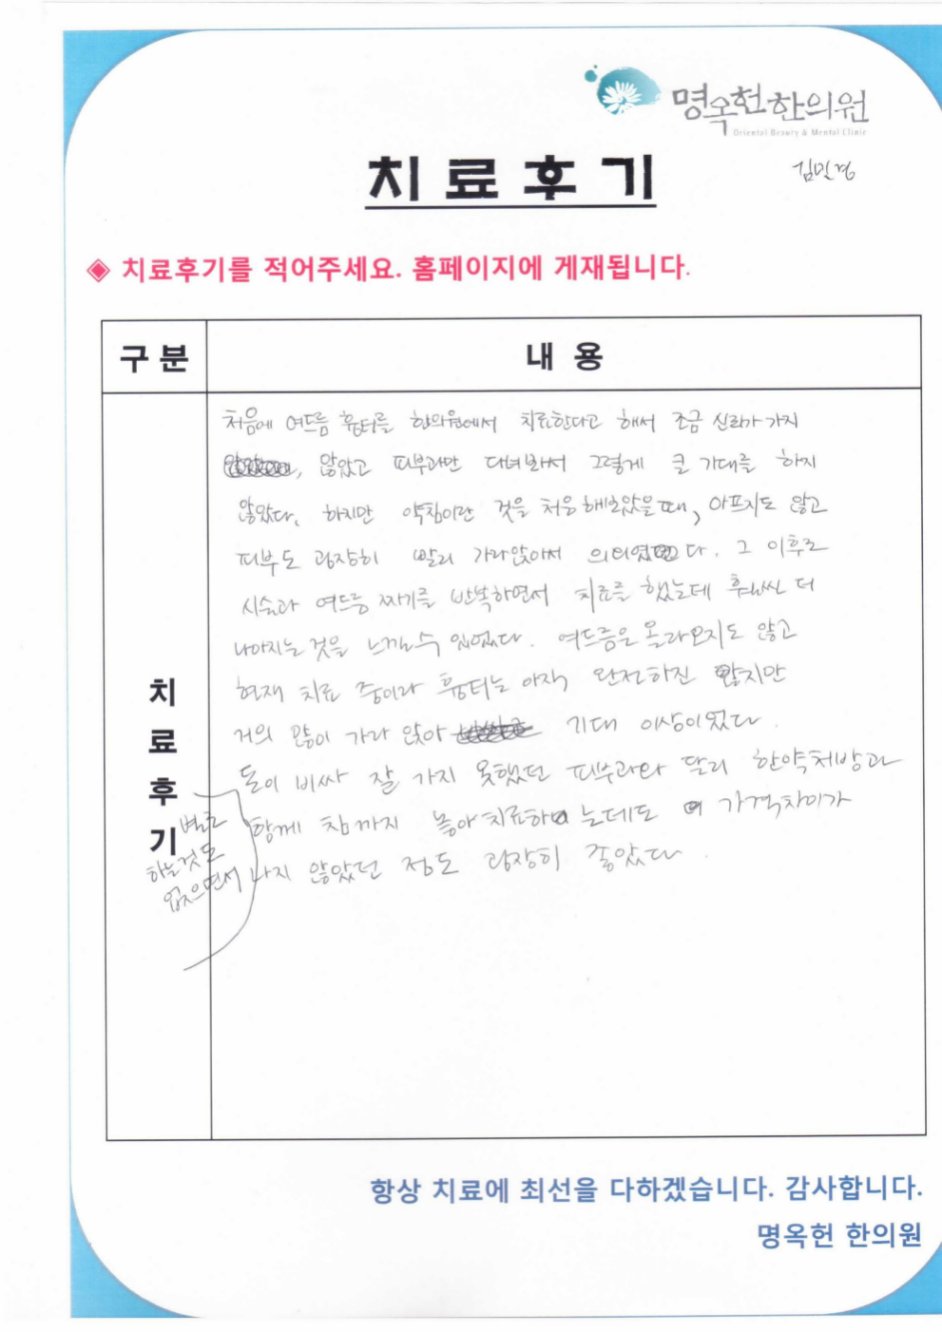 명옥헌한의원
Oriental Beauty & Mental Clinic
김민경
치료후기
◈ 치료후기를 적어주세요. 홈페이지에 게재됩니다.
구분
내 용
치료후기
처음에 여드름 흉터를 한의원에서 치료한다고 해서 조금 신뢰가 가지
않았고 피부과만 다녀봐서 그렇게 큰 기대를 하지
않았다. 하지만 약침이란 것을 처음 해보았을때, 아프지도 않고
피부도 굉장히 빨리 가라앉아서 의외였다. 그 이후로
시술과 여드름 짜기를 반복하면서 치료를 했는데 훨씬 더
나아지는 것을 느낄수 있었다. 여드름은 올라오지도 않고
현재 치료 중이라 흉터는 아직 완전하진 않지만
거의 많이 가라 앉아 기대 이상이었다.
돈이 비싸 잘 가지 못했던 피부과와 달리 한약처방과
함께 침까지 놓아 치료하는데도 가격차이가
별로
하는것도
없으면서
나지 않았던 점도 굉장히 좋았다.
항상 치료에 최선을 다하겠습니다. 감사합니다.
명옥헌 한의원